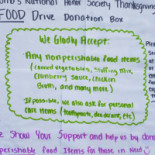 omb's National Honor Society Thanksgiving
FOOD Drive Donation Box
We Gladly Accept:
Any nonperishable food items
(canned vegetables, stuffing mix,
cranberry sauce, chicken
broth, and many more!)
If possible, we also ask for personal
care items (toothpaste, deodorant, etc.)
Show Your Support and help us by
perishable Food Items for those in need